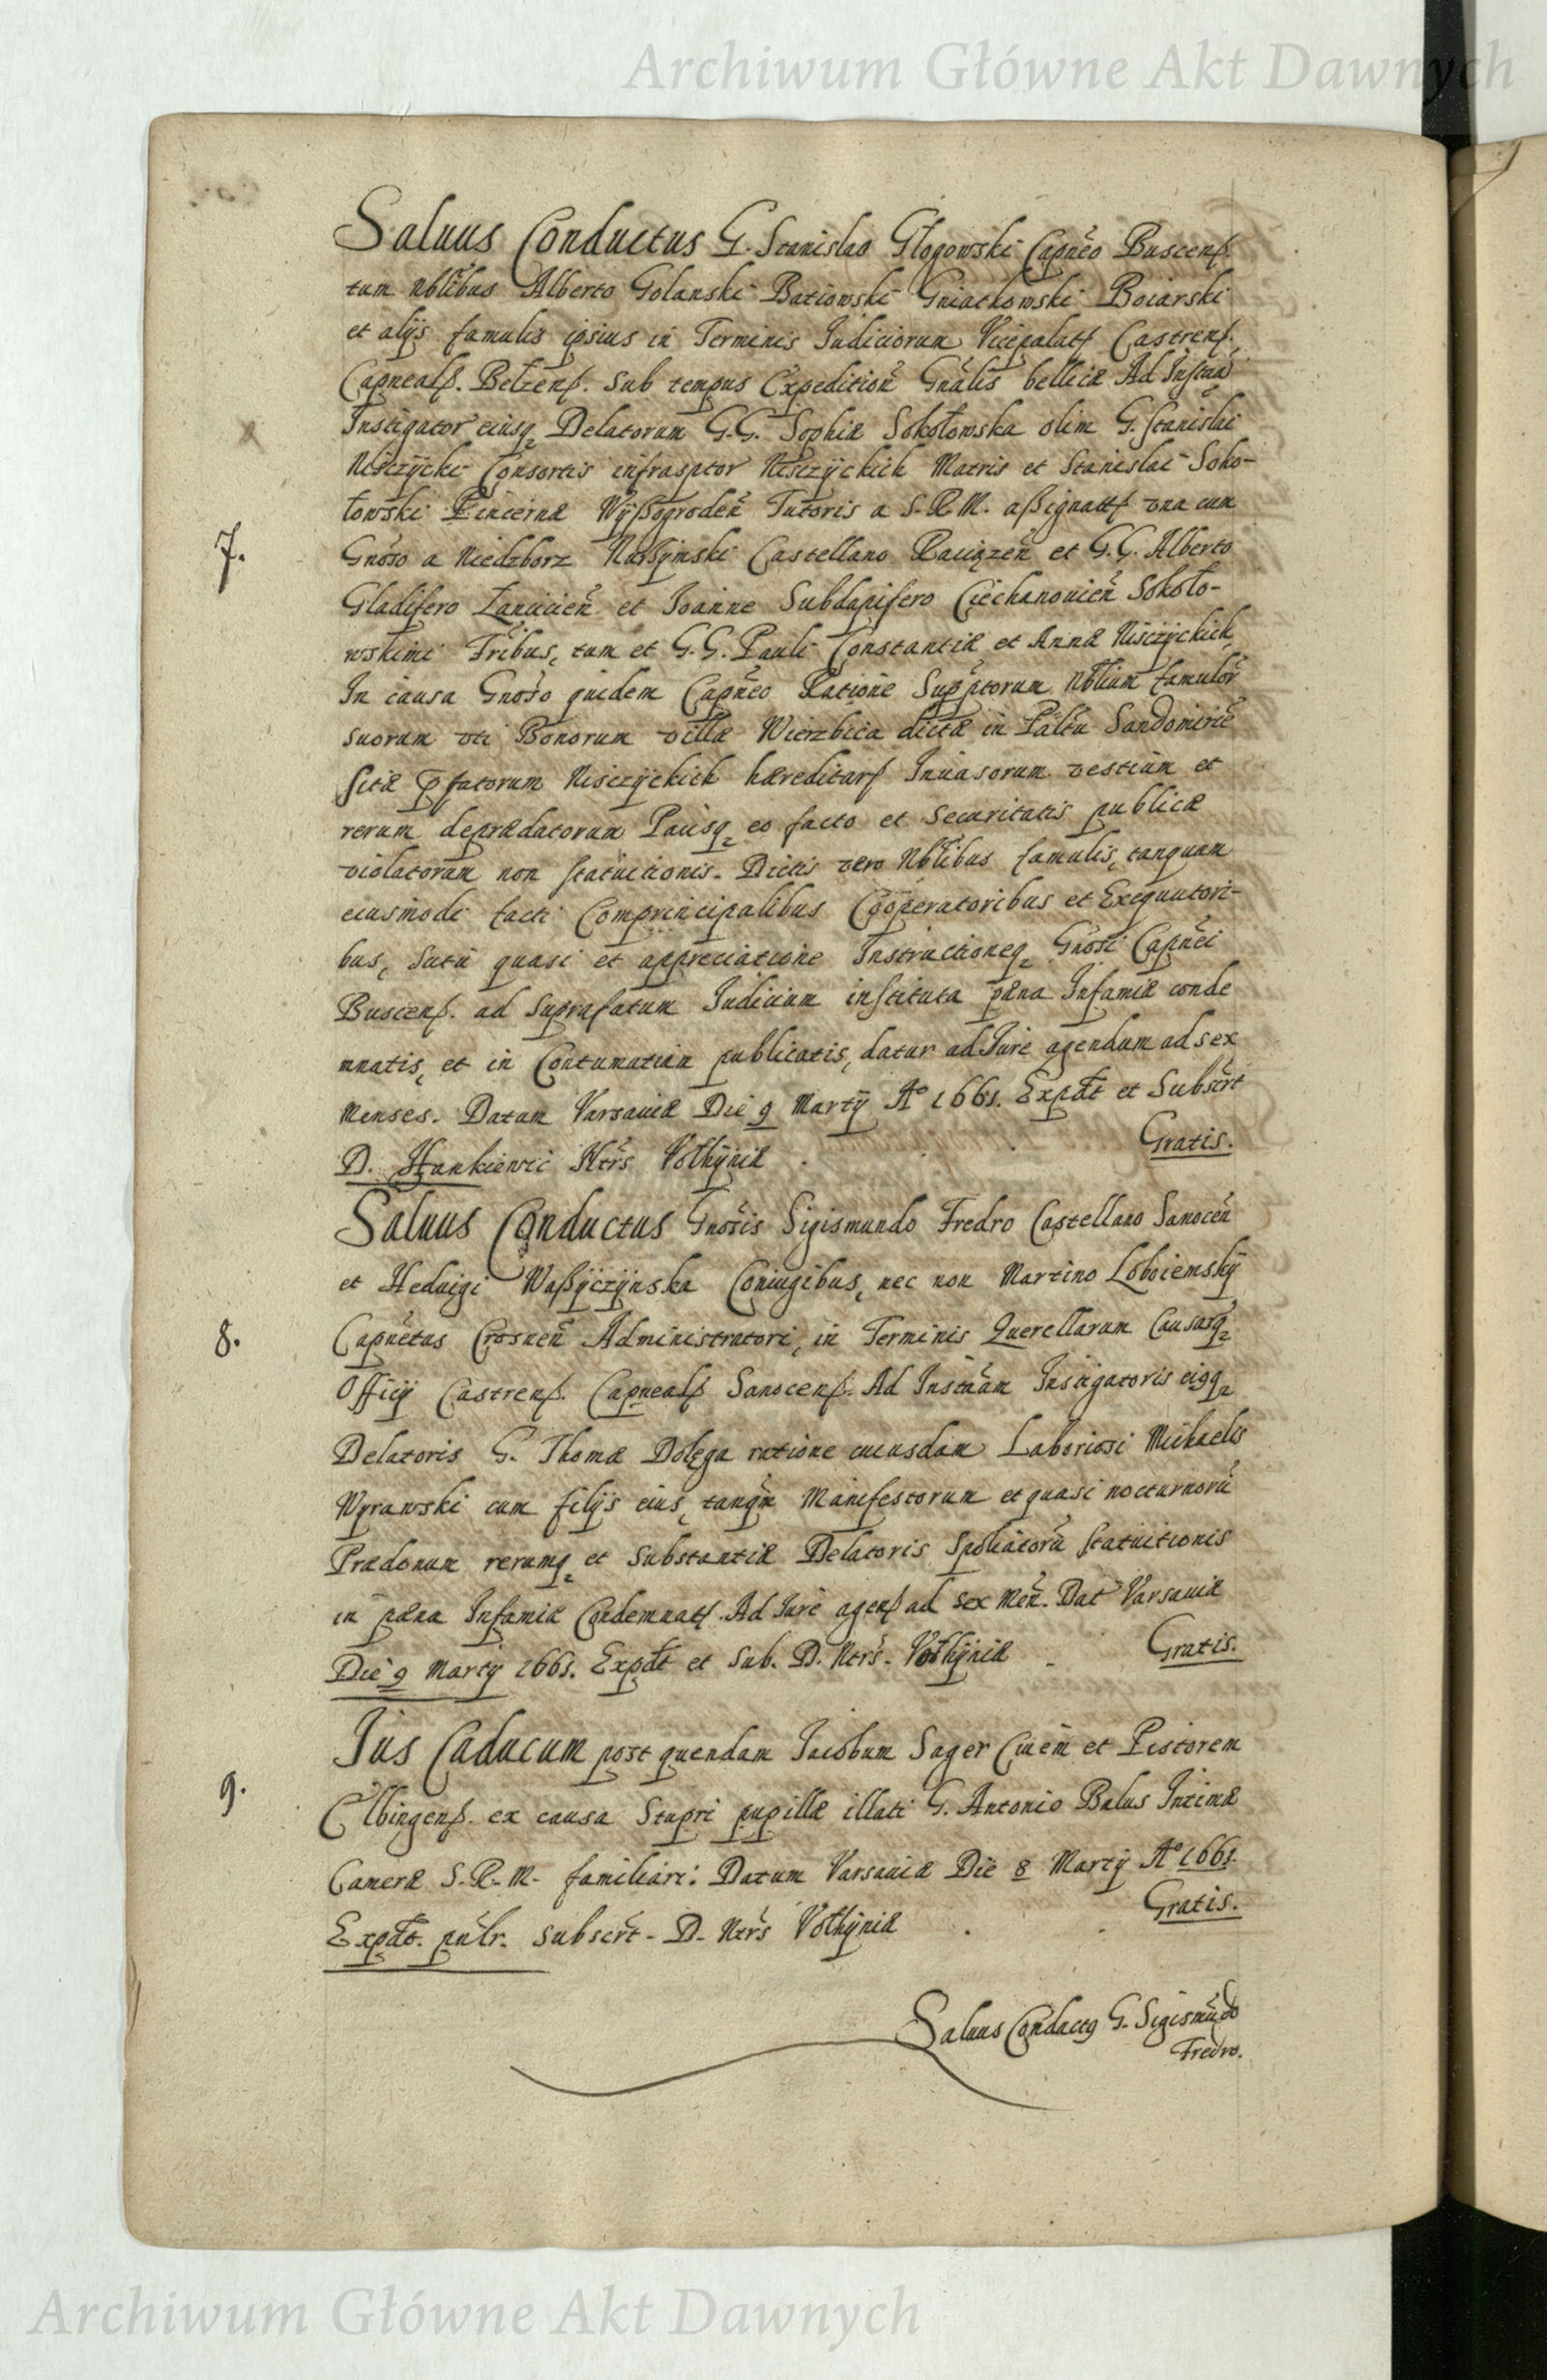 Archiwum Główne Akt Dawnych
Saluus Conductus G. Stanislao Głogowski Capneo Buscens.
tum Nblibus Alberto Golanski Batiowski Gniatkowski Boiarski
et alijs famulis ipsius in Terminis Iudiciorum Castrens.
Capneals. Bełzens. sub tempus Expedition Gnalis bellicæ Ad Instan
Instigator eiusq Delatorum G.G. Sophiæ Sokołowska olim G. Stanislai
Nisczÿcki Consortis infrasptor Nisczÿckich Matris et Stanislai Soko-
łowski Pincernæ Wÿßogroden Tutoris a S.R.M. aßignatt vna cum
7.
Gnoso a Niedzborz Narzÿmski Castellano Raciązen et G.G. Alberto
Gladifero Łancicien et Ioanne Subdapifero Ciechanouien Sokoło-
wskimi Fribus, tum et G.G. Pauli Constantiæ et Annæ Nisczÿckich,
In causa Gnoso quidem Capneo Ratione Supptorum Nblium famulor
suorum vti Bonorum villæ Wierzbica dictæ in Paltu Sandomirie
sitæ pfatorum Nisczÿckich hæreditars Inuasorum vestium et
rerum deprædatorum Pacisq eo facto et securitatis publicæ
violatorum non statuitionis. Dictis vero Nblibus famulis, tanquam
eiusmodi facti Comprincipalibus Cooperatoribus et Exequutori-
bus, quasi et appreciatione Instructioneq Gnosi Capnei
Buscens. ad suprafatum Iudicium instituta pæna Infamiæ conde
mnatis, et in Contumatiam publicatis, datur ad Iure agendum ad sex
Menses. Datum Varsauiæ Die 9 Martÿ Ao 1661. Expdt et Subscrt
D. Hankiewic Ntrs Vołhÿniæ . . Gratis.
Saluus Conductus Gnosis Sigismundo Fredro Castellano Sanocen
et Heduigi Waßÿczÿnska Coniugibus, nec non Martino Loboiemskÿ
8.
Capnetus Crosnen Administratori, in Terminis Querellarum Causarq
Officÿ Castrens. Capneals Sanocens. Ad Instnam Instigatoris eigq
Delatoris G. Thomæ Dołęga ratione cuiusdam Laboriosi Michaelis
Wyrawski cum filÿs eius, tanqm Manifestorum et quasi nocturnoru
Prædonum rerumq et substantiæ Delatoris Spoliatoru statuitionis
in pæna Infamiæ Condemnatt. Ad Iure agens ad sex Men. Dat Varsauiæ
Die 9 Martÿ 1661. Expdt et Sub. D. Ntrs. Vołhÿniæ - . Gratis.
Ius Caducum post quendam Iacobum Sager Ciuem et Pistorem
9.
Elbingens. ex causa Stupri pupillæ illati G. Antonio Balus Intimæ
Cameræ S.R.M. familiari: Datum Varsauiæ Die 8 Martÿ Ao 1661.
Expdt. pulr. subscrt. D. Ntrs Vołhÿniæ . . Gratis.
Saluus Conductg G. Sigismudo
Fredro.
Archiwum Główne Akt Dawnych